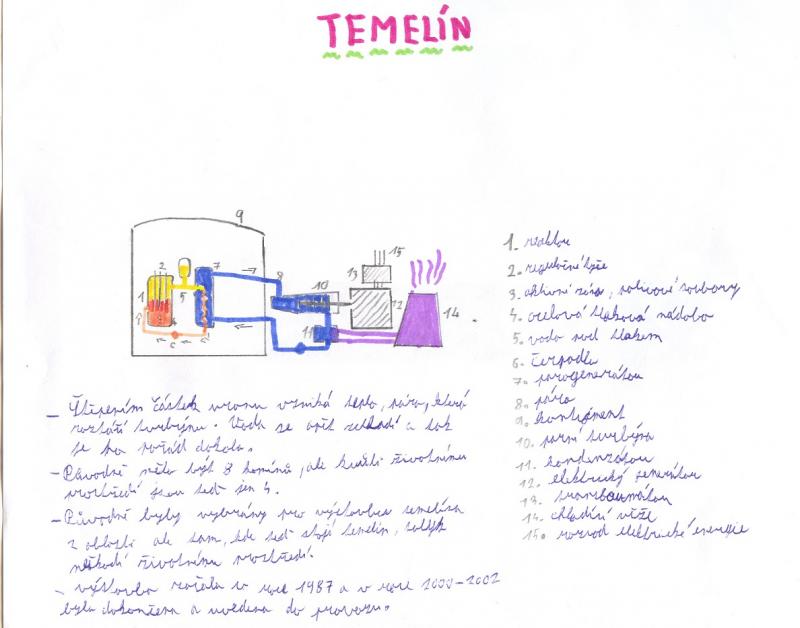 TEMELÍN
9
2 7 8 15
13
10
1 5 12 14
11
3 4
6
1. reaktor
2. regulační tyče
3. aktivní zóna, palivové soubory
4. ocelová tlaková nádoba
5. voda pod tlakem
6. čerpadla
7. parogenerátor
8. pára
9. kontejment
10. parní turbýna
11. kondenzátor
12. elektrický generátor
13. transformátor
14. chladící věže
15. rozvod elektrické energie
- Štěpením částek uranu vzniká teplo, pára, která
roztáčí turbýnu. Voda se opět zchladí a tak
je to pořád dokola.
- Původně mělo být 8 komínů, ale kvůli životnímu
prostředí jsou teď jen 4.
- Původně byly vybrány pro výstavbu temelína
2 oblasti ale tam, kde teď stojí temelín, tolik
neškodí životnímu prostředí.
- výstavba začala v roce 1987 a v roce 2000-2002
byla dokončena a uvedena do provozu.